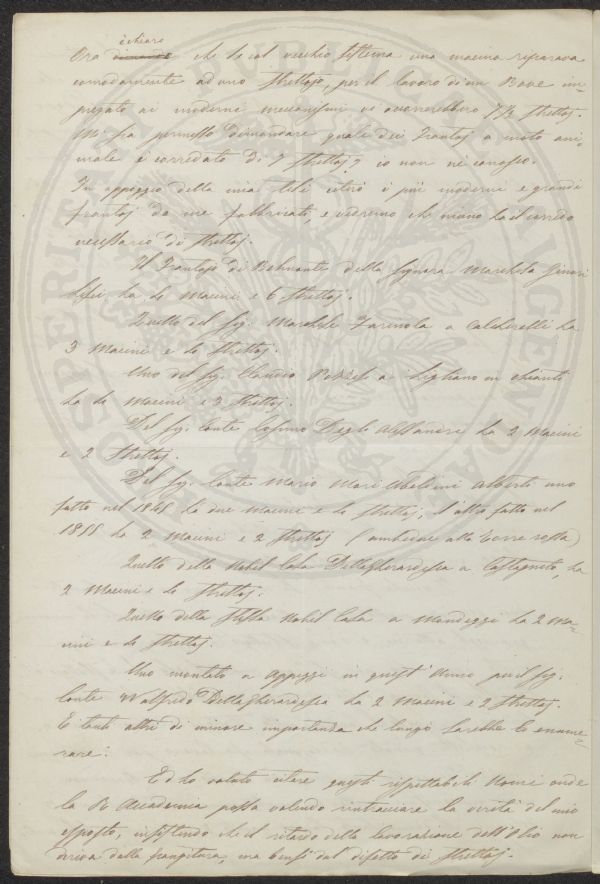 è chiaro
Ora dimando che se col vecchio sistema una macina riparava
comodamente ad uno strettojo, per il lavoro di un Bove im=
piegato ai moderni meccanismi vi occorrerebbero 7½ strettoj.
Mi sia permesso dimandare quale dei Frantoj a moto ani=
male è corredato di 7 strettoj? io non ne conosco.
In appoggio della mia tesi citerò i più moderni e grandi
frantoj da me fabbricati, e vedremo che niuno ha il corredo
necessario di strettoj.
Il Frantojo di della Signora Marchesa Ginori
Lisci ha 4 Macini e 6 Strettoj.
Quello del Sig. Marchese Farinola a ha
3 Macini e 4 Strettoj.
Uno del Sig. Claudio a in Chianti
ha 4 Macini e 2 Strettoj.
Del Sig. Conte Cosimo Degli Alessandri ha 2 Macini
e 2 Strettoj.
Del Sig. Conte Mario Mori Ubaldini Alberti uno
fatto nel 1848 ha due macini e 4 Strettoj; l'altro fatto nel
1855 ha 2 Macini e 2 Strettoj (ambidue alla Torre rossa)
Quello della Nobil Casa Della Gherardesca a Castagneto, ha
2 Macini e 4 Strettoj.
Quello della Stessa Nobil Casa a Mondeggi ha 2 Ma=
cini e 4 Strettoj.
Uno montato a in quest'Anno per il Sig.
Conte Walfredo Della Gherardesca ha 2 Macini e 2 Strettoj.
E tanti altri di minore importanza che lungo sarebbe lo enume=
rare.
Ed ho voluto citare questi rispettabili Nomi onde
la R. Accademia possa volendo rintracciare la verità del mio
esposto, insistendo che il ritardo della lavorazione dell'Olio non
deriva dalla frangitura, ma bensì dal difetto di Strettoj.